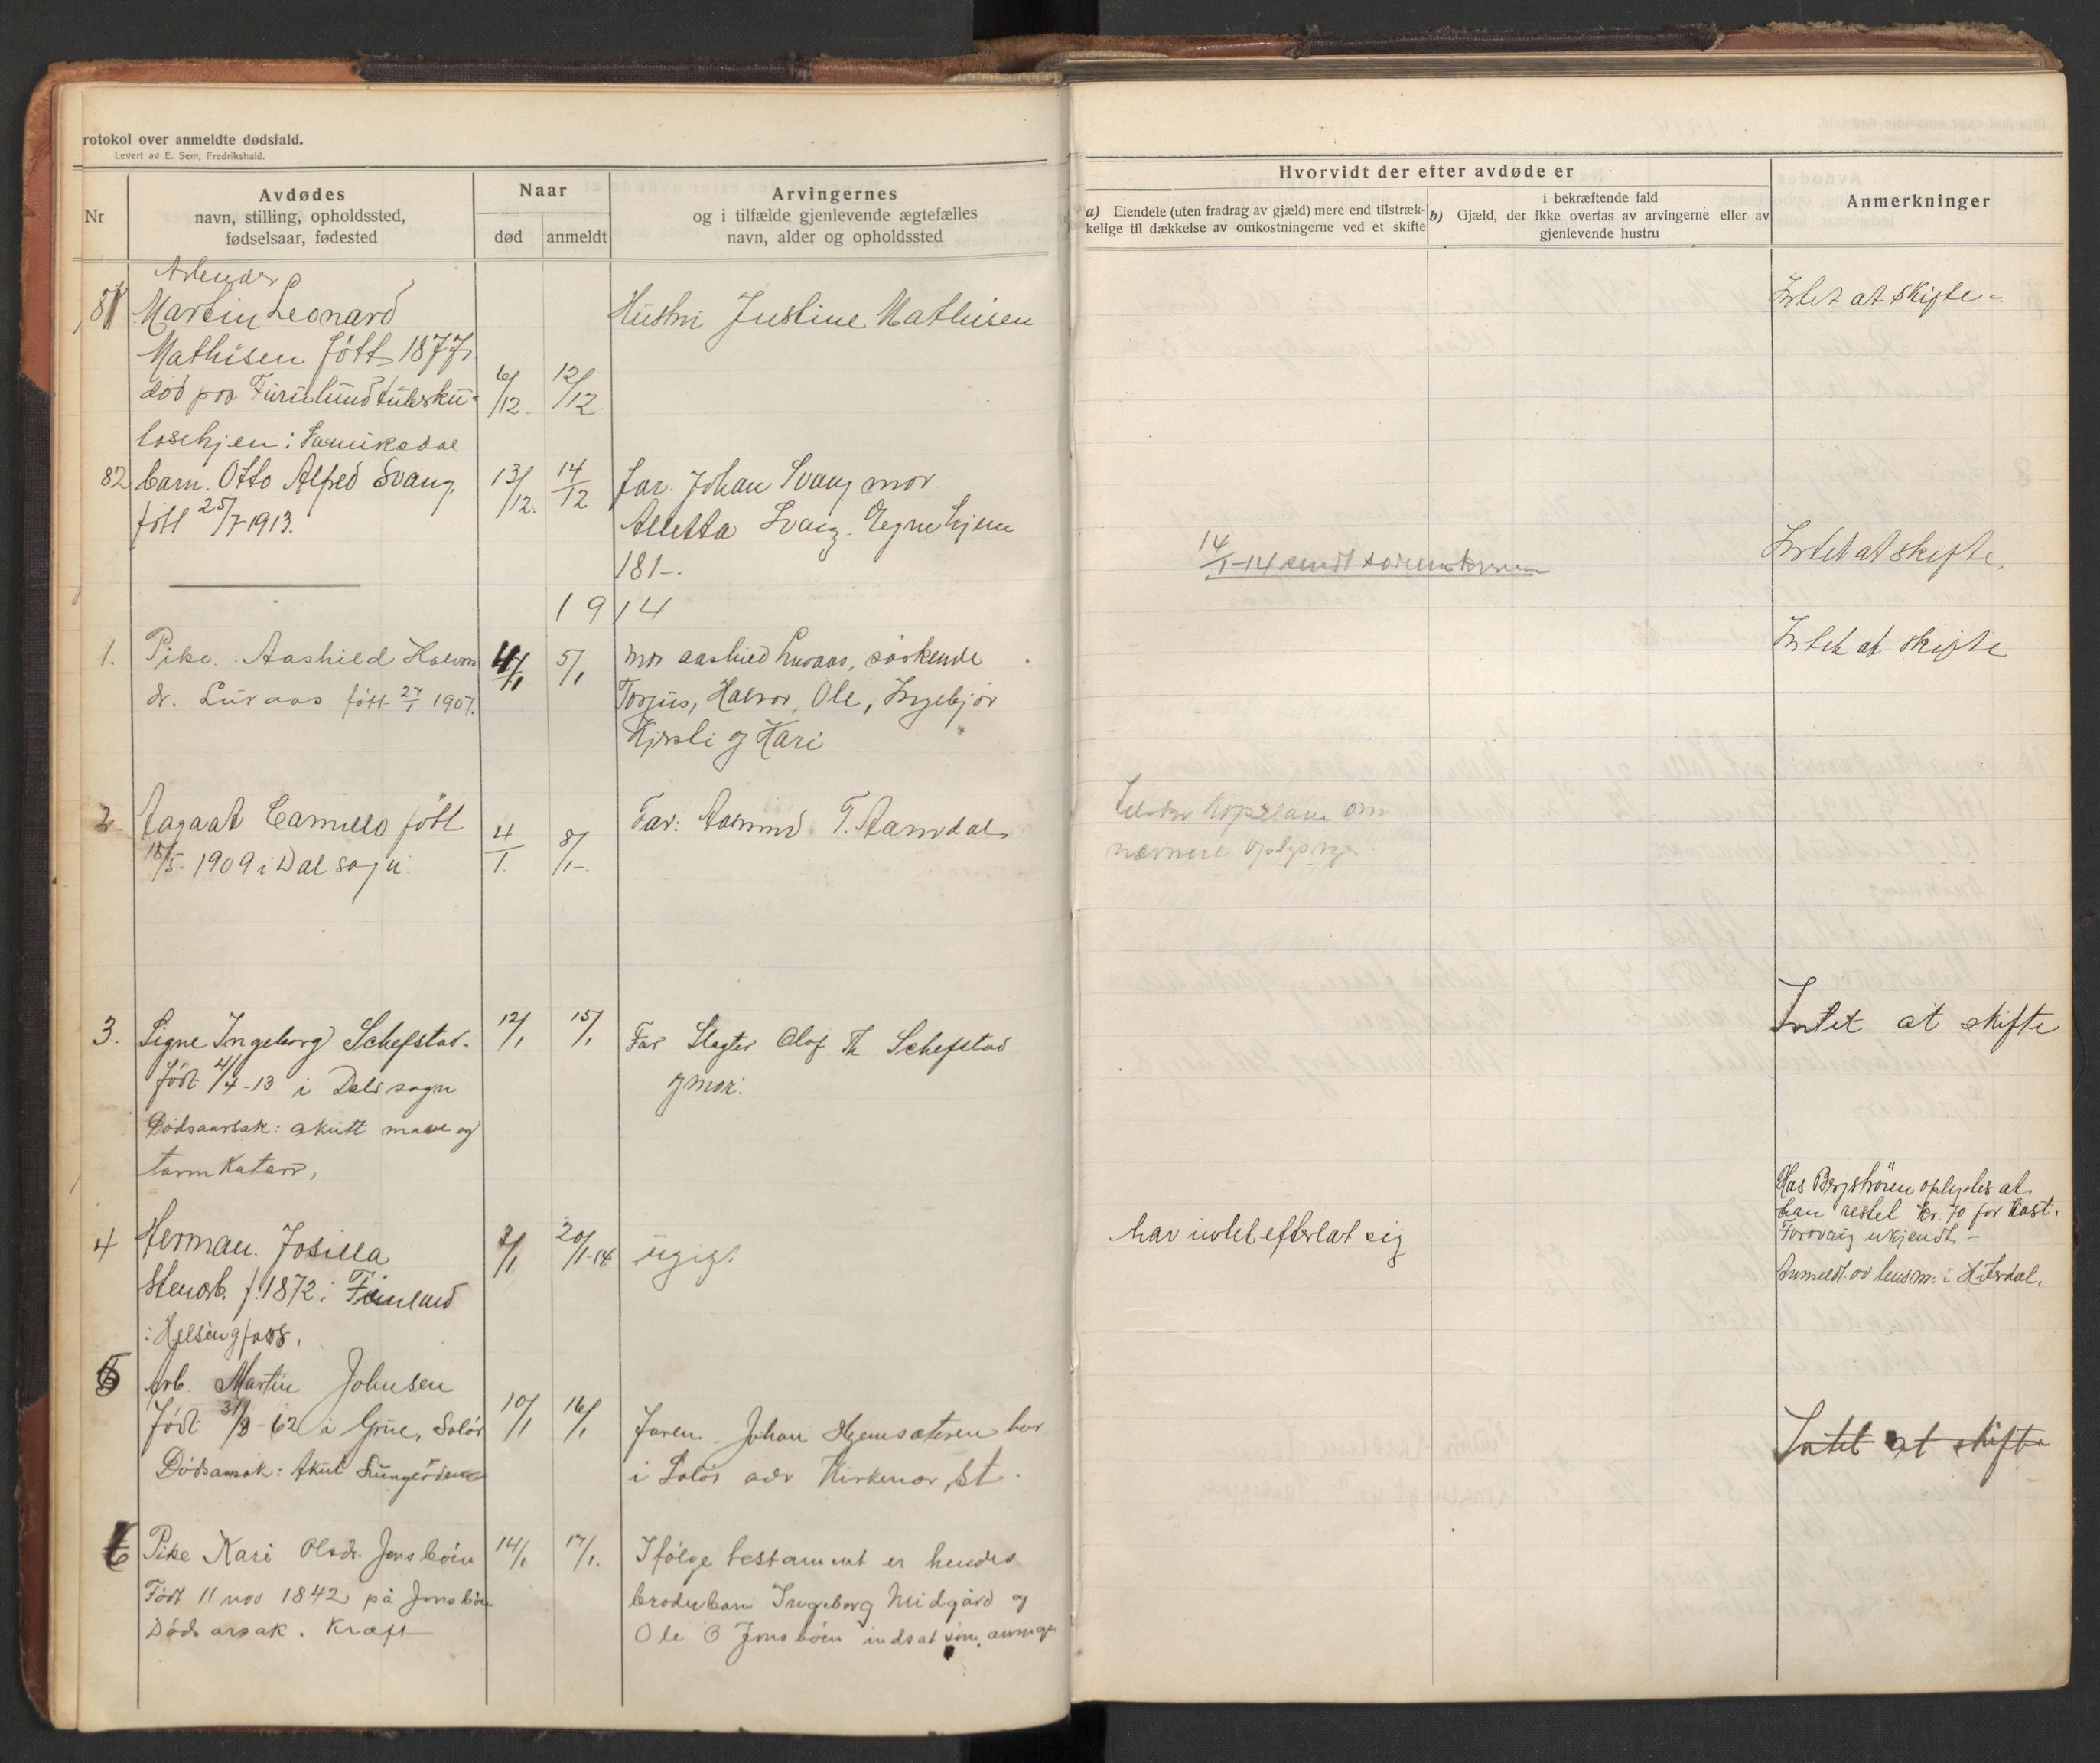 rotokol over anmeldte dødsfald.
Levert av E. Sem, Fredrikshald.
Nr
Avdødes
navn, stilling, opholdssted,
fødselsaar, fødested
Naar
død
anmeldt
Arvingernes
og i tilfælde gjenlevende ægtefælles
navn, alder og opholdssted
Hvorvidt der efter avdøde er
a) Eiendele (uten fradrag av gjæld) mere end tilstræk-
kelige til dækkelse av omkostningerne ved et skifte
i bekræftende fald
b) Gjæld, der ikke overtas av arvingerne eller av
gjenlevende hustru
Anmerkninger
Arbeuder
81 Martin Leonard
Mathisen fött 1877
död paa Furulund tuberku-
losehjem i
6/12 12/12
Hustru Justine Mathisen
Intet at skifte -
82 barn. Otto Alfred Svang.
fött 25/7 1913.
13/12. 14/12
far. Johan Svang mor
Aletta Svang. Egne hjem
181-.
14/1-14 sendt
Intet at skifte.
1914
1. Pike. Aashild Halvors
dr. Luraas fött 27/1 1907.
4/1 5/1
mor aashild Luraas, söskende
Torjus, Halvor, Ole, Ingebjör
Kjersti og Hari
Intet at skifte
2 Aagaat Camilla fött
18/5. 1909 i Dal sogn.
4/1. 8/1-
Far: Aasmund T. Aamdal
om
nærmere oplysninger.
3. Signe Ingeborg Schefstad.
født 4/4-13 i Dals sogn
Dødsaarsak: akutt mave og
tarmkatarr,
12/1 15/1
Far Slagter Olaf Th Schefstad
og mor.
Intet at skifte
4 Herman. Josilla
Stenarb. f. 1872 i Finland
i Helsingfors.
2/1 20/1-14
ugift.
har intet efterlat sig
Hos Bergströren oplystes at
han restet kr. 70 for kost.
Forövrig ukjendt. -
Anmeldt av lensm. i Hitterdal.
5 Arb. Martin Johnsen
født 31/3-62 i Grue, Solör
Dödsarsak: Akut
10/1 16/1
faren Johan bor
i Solör adr Kirkenær St.
Intet at skifte
6 Pike Kari Olsdr. Jonsböen
Født 11 nov 1842 på Jonsböen
Döds arsak. Kræft
14/1 17/1.
Ifölge testament er hendes
broderbarn Ingeborg Midgård og
Ole O Jonsböen indsat som arvinger